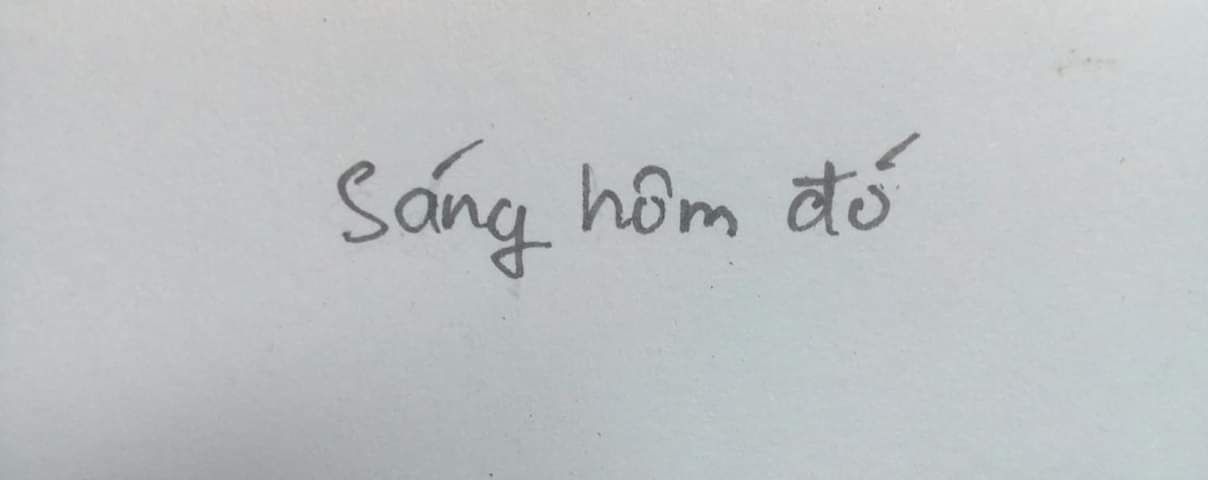 Sáng hôm đó